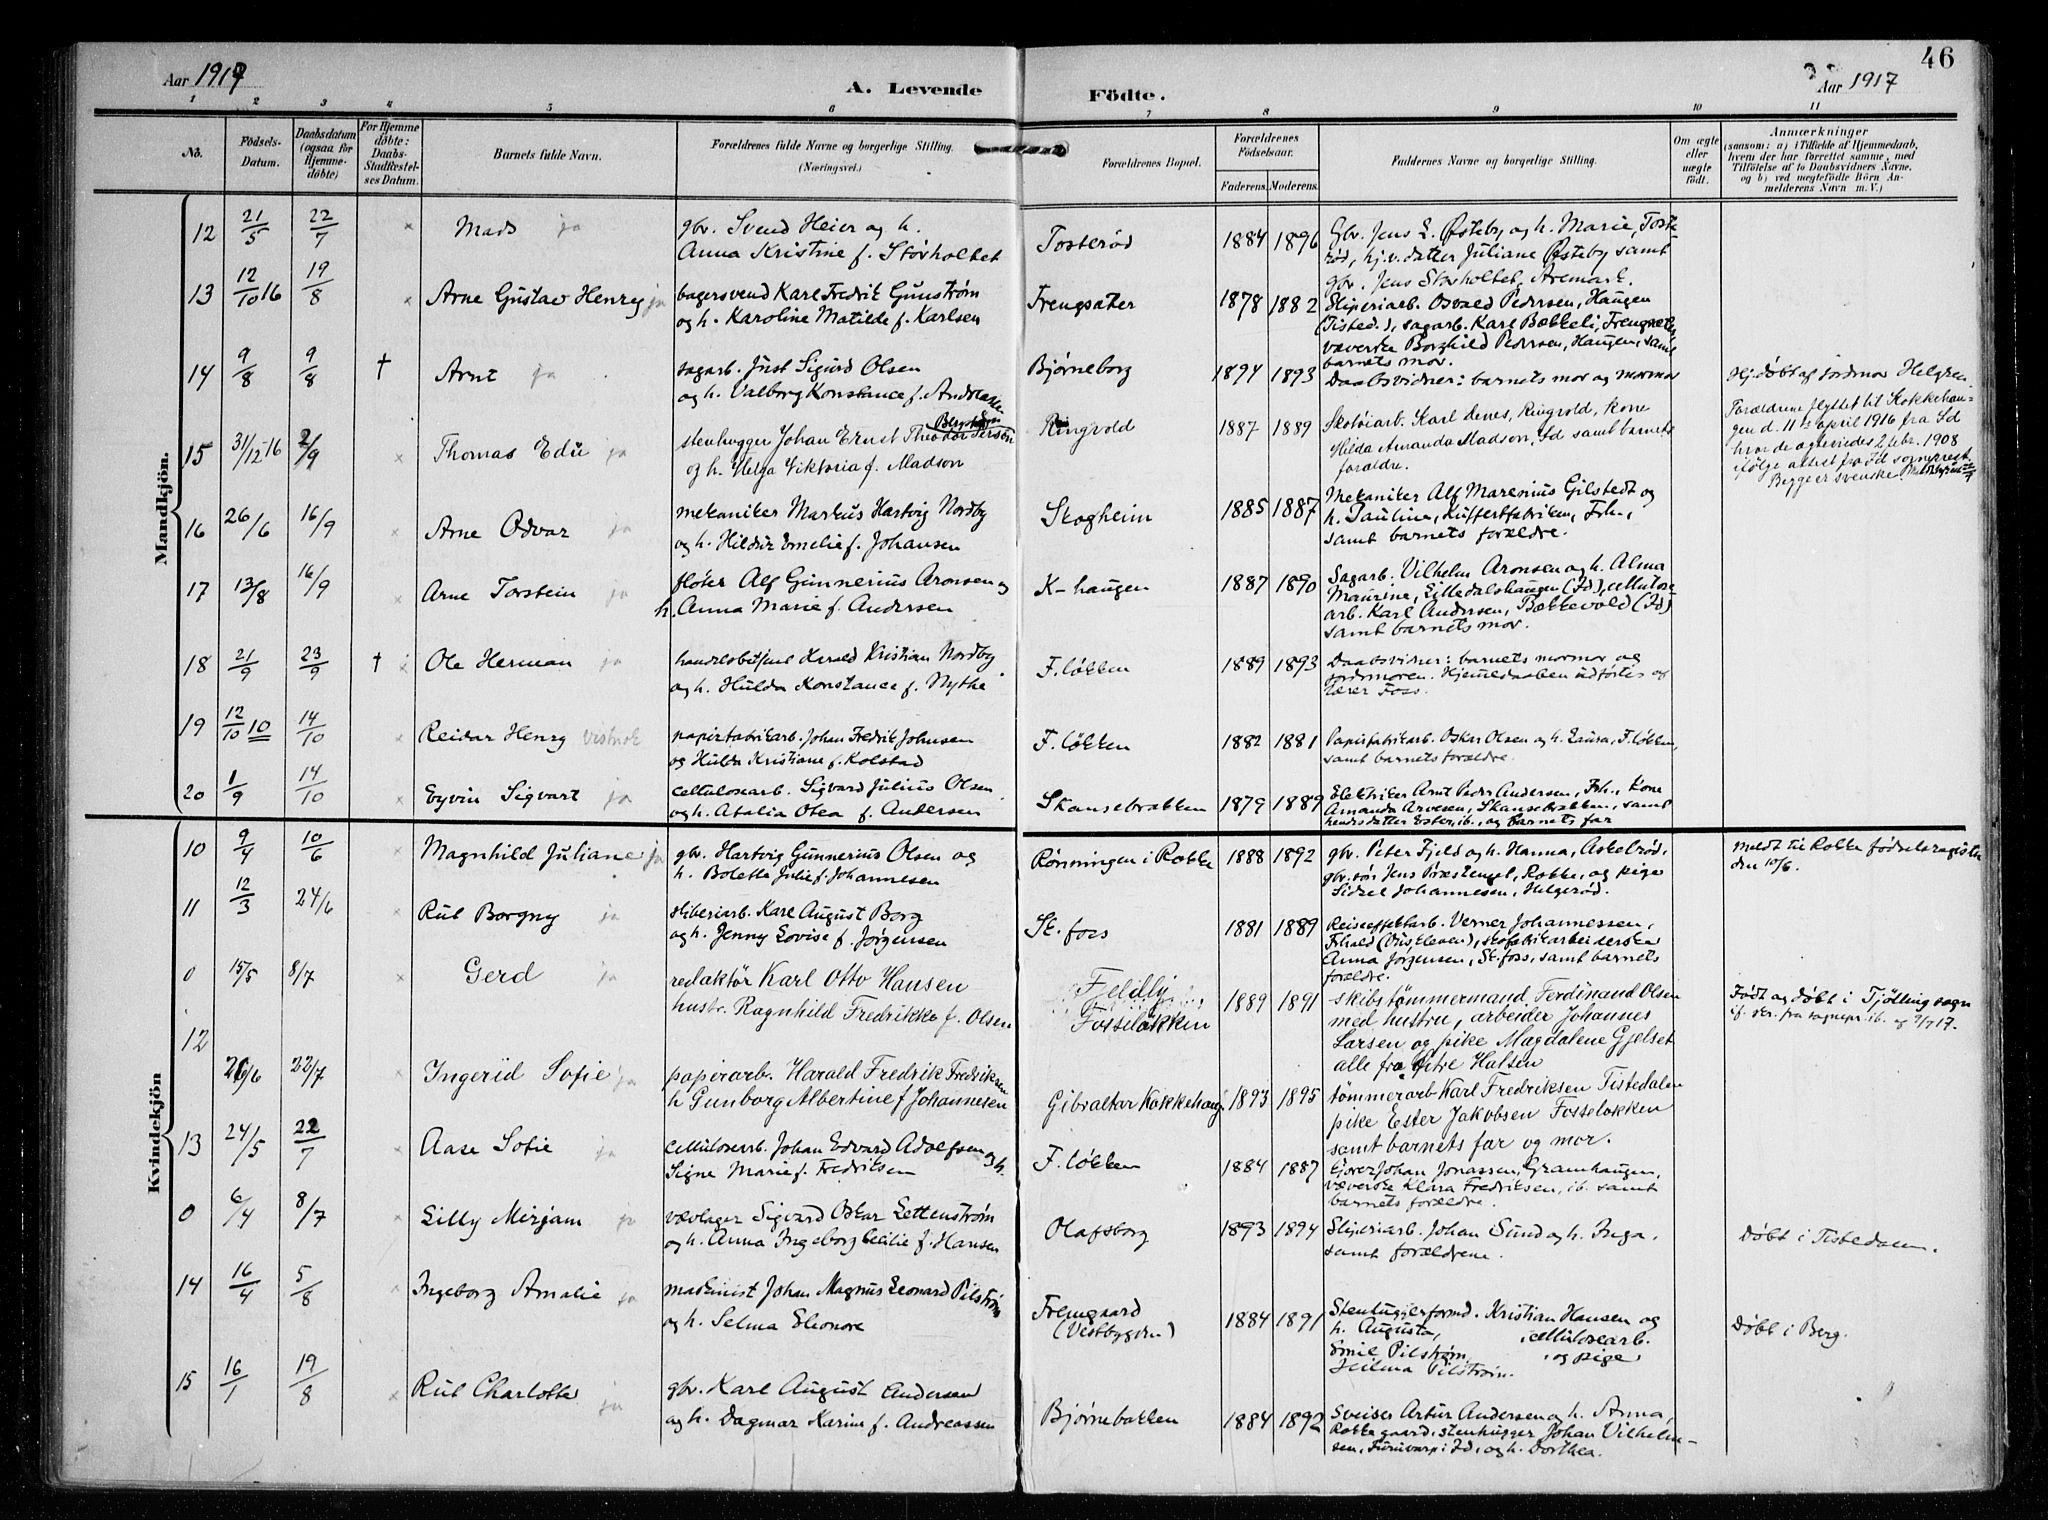 46
Aar 1917
A. Levende
Födte.
Aar 1917
1 2 3 4 5 6 7 8 9 10 11
No.
Födsels-
Datum.
Daabsdatum
(ogsaa for
Hjemme-
döbte)
For Hjemme
döbte:
Daabs-
Stadfæstel-
ses Datum.
Barnets fulde Navn.
Forældrenes fulde Navne og borgerlige Stilling.
(Næringsvei.)
Forældrenes Bopæl.
Forældrenes
Födselsaar.
Faderens. Moderens.
Faddernes Navne og borgerlige Stilling.
Om ægte
eller
uægte
födt.
Anmærkninger
(saasom: a) i Tilfælde af Hjemmedaab,
hvem der har forrettet samme, med
Tilföielse af to Daabsvidners Navne,
og b) ved uægtefödte Börn An-
melderens Navn m. V.)
Mandkjön.
12 21/5 22/7 Mads ja
gbr. Svend Heier og h.
Anna Kristine f. Storholtet
Tosterød 1884 1896
Gbr. Jens L. Østeby og h. Marie, Toste-
rød, hj.v. datter Juliane Østeby samt
gbr. Jens Storholtet, Aremark.
13 12/10 16 19/8 Arne Gustav Henry ja
bagersvend Karl Fredrik Gunstrøm
og h. Karoline Matilde f. Karlsen
Frengsater 1878 1882
Sliperiarb. Osvald Pedersen, Haugen
(Tisted.), sagarb. Karl Bækkeli, Frengsater
væverske Borghild Pedersen, Haugen, samt
barnets mor.
14 9/8 9/8 † Arnt ja
sagarb. Just Sigurd Olsen
og h. Valborg Konstance f. Andreassen
Bjørneborg 1894 1893
Daabsvidner: barnets mor og mormor
Hj.døbt af jordmor Helgren
15 31/12-16 2/9 Thomas Edu ja
stenhugger Johan Ernst Theodor
og h. Helga Viktoria f. Madson
Ringvold 1887 1889
Skotøiarb. Karl Enes, Ringvold, kone
Hilda Amanda Madson, Id samt barnets
forældre.
Forældrene flyttet til Kokkehau-
gen d. 11te april 1916 fra Id
hvor de egteviedes 2 febr. 1908
ifølge attest fra Id sogneprest.
Begge er svenske.
16 26/6 16/9 Arne Odvar ja
mekaniker Markus Hartvig Nordby
og h. Hildur Emelie f. Johansen
Skogheim 1885 1887
Mekaniker Alf Marenius Gilstedt og
h. Pauline, Kuffertfabriken, Frh.,
samt barnets forældre.
17 13/8 16/9 Arne Torstein ja
fløter Alf Gunnerius Aronsen og
h. Anna Marie f. Andersen
K-haugen 1887 1890
Sagarb. Vilhelm Aronsen og h. Alma
Maurine, Lilledalshaugen (Id), cellulose-
arb. Karl Andersen, Bækkevold (Id)
samt barnets mor.
18 21/9 23/9 † Ole Herman ja
handelsbetjent Harald Kristian Nordby
og h. Hulda Konstance f. Nythe
F.løkken 1889 1893
Daabsvidner: barnets mormor og
jordmoren. Hjemmedaaben udførtes af
lærer Foss.
19 12/10 10 14/10 Reidar Henry vistnok
papirfabrikarb. Johan Fredrik Johnsen
og Hulda Kristiane f. Kolstad
F. løkken 1882 1881
Papirfabrikarb. Oskar Olsen og h. Laura, F. løkken,
samt barnets forældre.
20 1/9 14/10 Eyvin Sigvart ja
cellulosearb. Sigvard Julius Olsen
og h. Atalia Olea f. Andersen
Skansebakken 1879 1889
Elektriker Arnt Peder Andersen, Frh., Kone
Amanda Arvesen, Skansebakken, samt
datter Ester, ib., og barnets far
Kvindekjön
10 9/4 10/6 Magnhild Juliane ja
gbr. Hartvig Gunnerius Olsen og
h. Bolette Julie f. Johannesen
Rønningen i Rokke 1888 1892
gbr. Peter Fjeld og h. Hanna, Askelrød,
gbr. søn Jens Præstengel, Rokke, og pige
Sidsel Johannesen, Helgerød.
Meldt til Rokke fødselsregister
den 10/6.
11 12/3 24/6 Rut Borgny ja
sliberiarb. Karl August Borg
og h. Jenny Lovise f. Jørgensen
St. foss 1881 1889
Reiseeffektarb. Verner Johannessen,
Frhald (Busterven), skofabrikarbeiderske
Anna Jørgensen, St. foss, samt barnets
forældre.
0 15/5 8/7 Gerd ja
redaktør Karl Otto Hansen
hustr. Ragnhild Fredrikke f. Olsen
Feldly
Fosseløkken 1889 1891
skibstømmermand Ferdinand Olsen
med hustru, arbeider Johannes
Larsen og pike Magdalene Gjelset
alle fra Ytre Halsen
Født og døbt i Tjølling sogn
if. skr. fra sognepr. ib. af 9/7 17.
12 26/6 22/7 Ingerid Sofie ja
papirarb. Harald Fredrik Fredriksen
h Gunborg Albertine f Johannesen
Gibraltar Kokkehaug. 1893 1895
tømmerarb Karl Fredriksen Tistedalen
pike Ester Jakobsen Fosseløkken
samt barnets far og mor.
13 24/5 22/7 Aase Sofie ja
cellulosearb. Johan Edvard Adolfsen og h.
Signe Marie f. Fredriksen
F. løkken 1884 1887
Johan Jonassen, Gramhaugen,
væverske Klara Fredriksen, ib. samt
barnets forældre.
0 6/4 8/7 Lilly Mirjam ja
vævlager Sigvard Oskar Zettenstrøm
og h. Anna Ingeborg Cecilie f. Hansen
Olafsborg 1893 1894
Sliperiarb. Johan Sund og h. Inga,
samt forældrene.
Døbt i Tistedalen.
14 16/4 5/8 Ingeborg Amalie ja
maskinist Johan Magnus Leonard Pilstrøm
og h. Selma Eleonore
Fremgaard
(Vestbygden) 1884 1891
Stenhugjerformd. Kristian Hansen og
h. Augusta, cellulosearb.
Emil Pilstrøm og pige
Hilma Pilstrøm.
Døbt i Berg.
15 16/1 19/8 Rut Charlotte ja
gbr. Karl August Andersen
og h. Dagmar Karine f. Andreassen
Bjørnebakken 1884 1892
Sveiser Artur Andersen og h. Anna,
Rokke gaard, stenhugger Johan Vilhelm-
sen, Furuvarp i Id, og h. Dorthea.